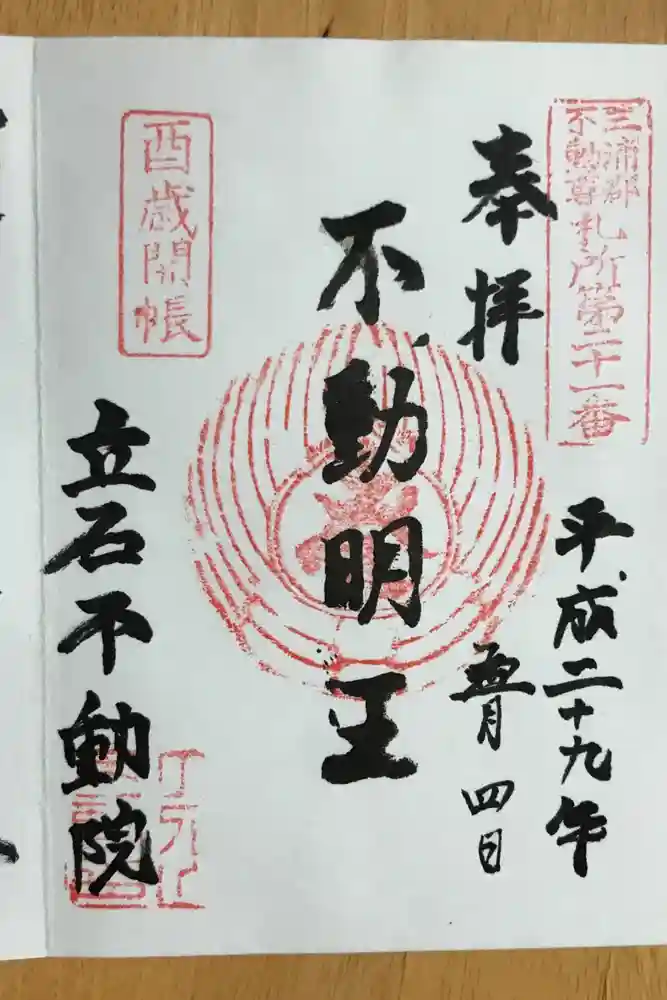 三浦郡
不動尊
札所第二十一番
奉拝
平成二十九年
五月四日
不動明王
酉歳開帳
立石不動院